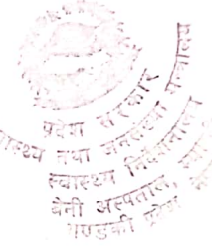 प्रदेश सरकार
स्वास्थ्य तथा जनसंख्या मन्त्रालय
स्वास्थ्य निर्देशनालय
बेनी अस्पताल,
गण्डकी प्रदेश